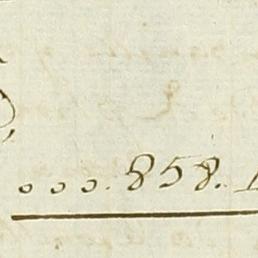 ... 858.